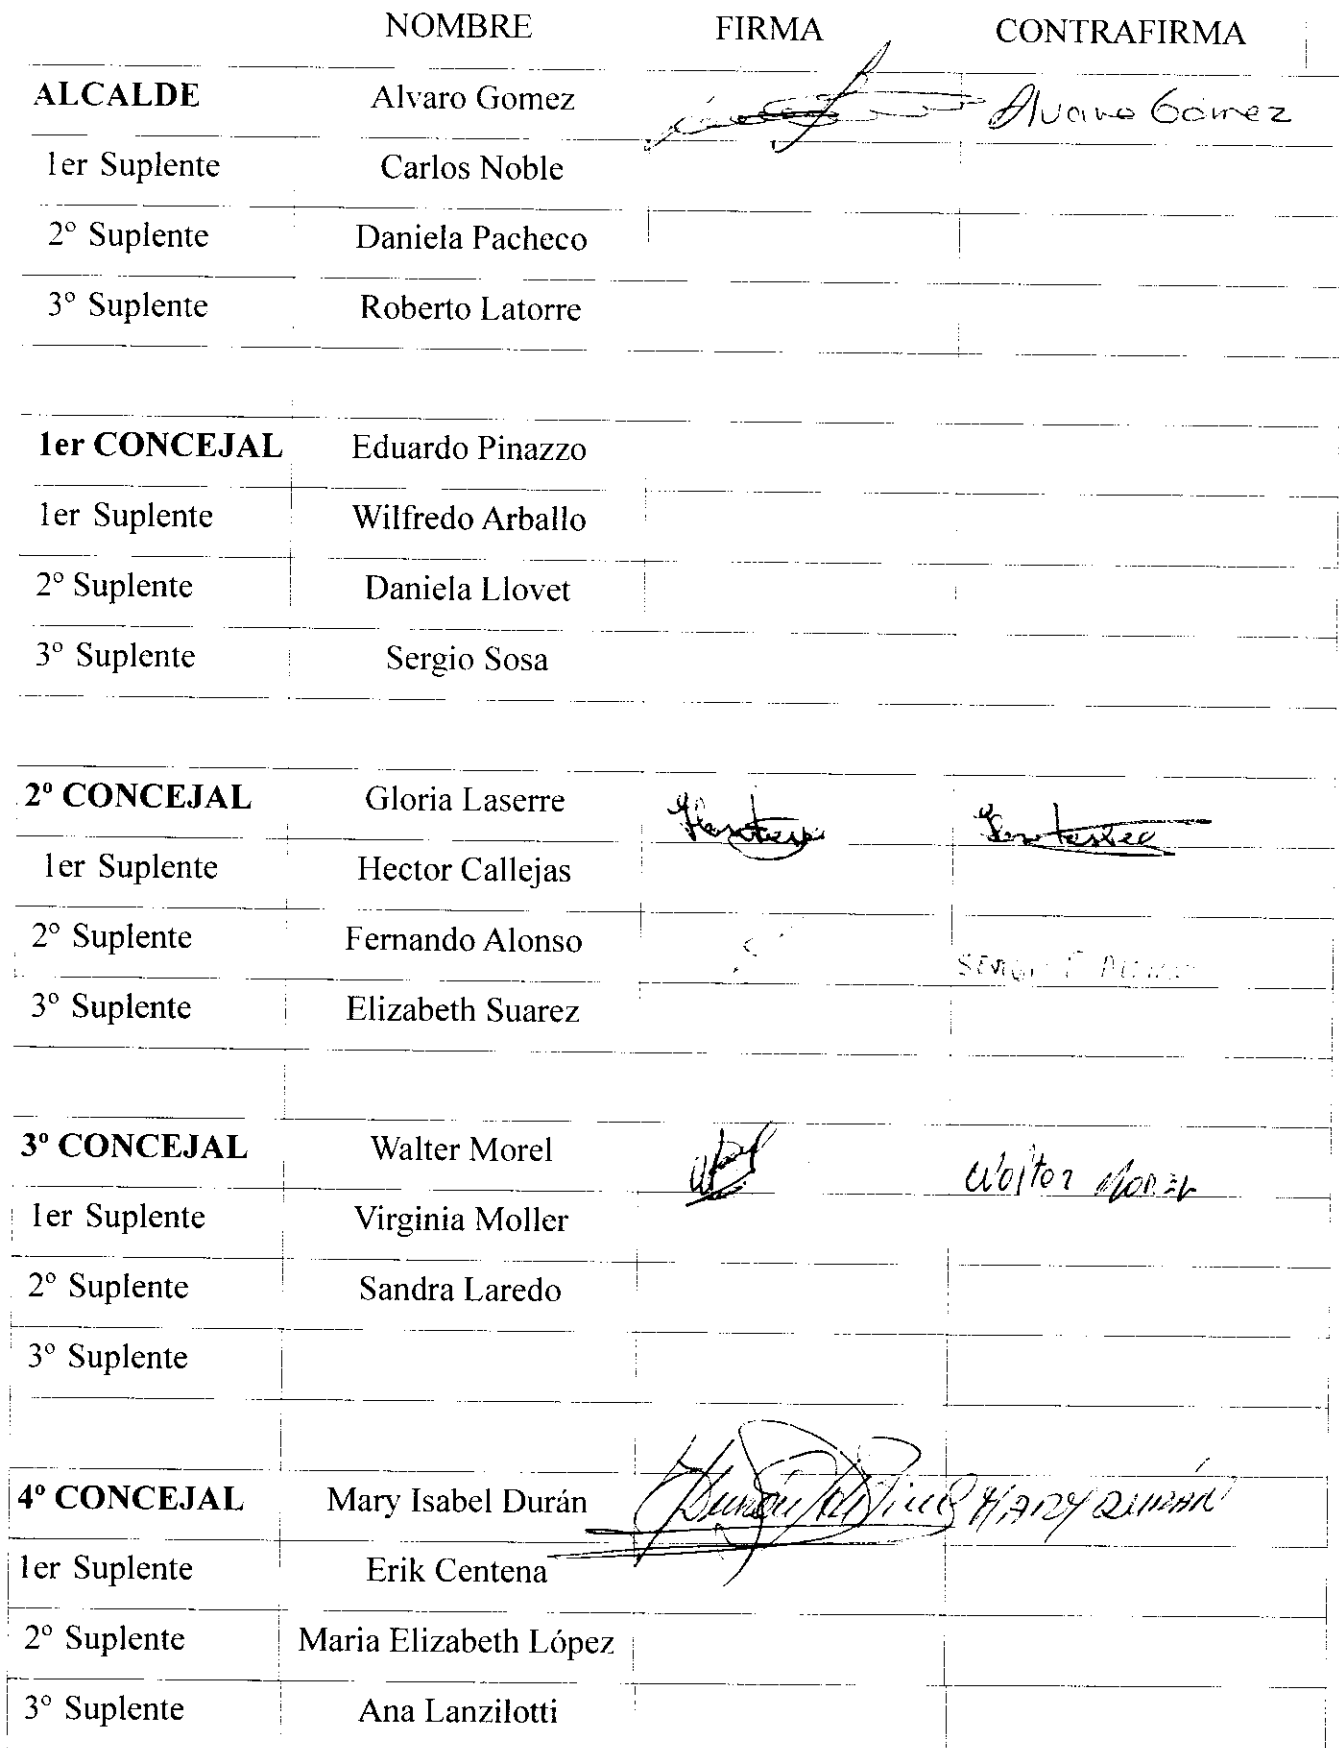 NOMBRE FIRMA CONTRAFIRMA
ALCALDE Alvaro Gomez Alvaro Gómez
1er Suplente Carlos Noble
2º Suplente Daniela Pacheco
3º Suplente Roberto Latorre
1er CONCEJAL Eduardo Pinazzo
1er Suplente Wilfredo Arballo
2º Suplente Daniela Llovet
3º Suplente Sergio Sosa
2º CONCEJAL Gloria Laserre
1er Suplente Hector Callejas
2º Suplente Fernando Alonso
3º Suplente Elizabeth Suarez
3º CONCEJAL Walter Morel Walter Morel
1er Suplente Virginia Moller
2º Suplente Sandra Laredo
3º Suplente
4º CONCEJAL Mary Isabel Durán MARY DURÁN
1er Suplente Erik Centena
2º Suplente Maria Elizabeth López
3º Suplente Ana Lanzilotti